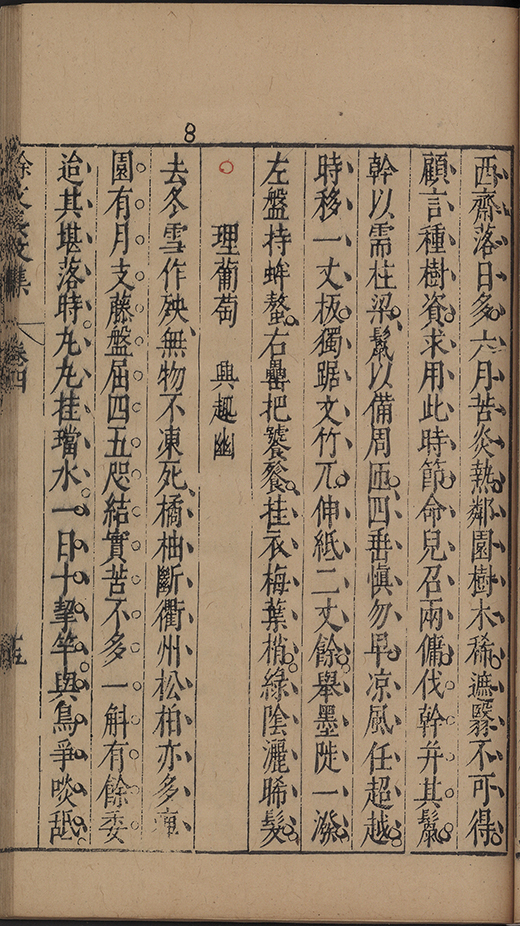 8
西齋落日多六月苦炎熱鄰園樹木稀遮翳不可得
顧言種樹資求用此時節命兒召兩傭伐幹并其鬣
幹以需柱梁鬣以備周匝四垂愼勿早凉風任超越
時移一丈板獨踞文竹兀伸紙二丈餘舉墨陡一潑
左盤持蛑螯右罍把饕餮挂衣梅葉梢綠陰灑晞髮
理葡萄 興趣幽
去冬雪作殃無物不凍死橘柚斷衢州松柏亦多
園有月支藤盤屈四五咫結實苦不多一斛有餘委
迨其堪落時九九挂璫水一日十挈竿與鳥爭啖舐
徐文長文集 卷四 五